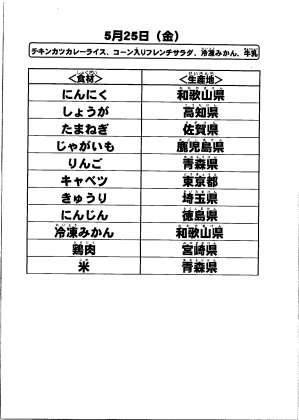 5月25日（金）
チキンカツカレーライス、コーン入りフレンチサラダ、冷凍みかん、牛乳
＜食材＞ ＜生産地＞
にんにく 和歌山県
しょうが 高知県
たまねぎ 佐賀県
じゃがいも 鹿児島県
りんご 青森県
キャベツ 東京都
きゅうり 埼玉県
にんじん 徳島県
冷凍みかん 和歌山県
鶏肉 宮崎県
米 青森県